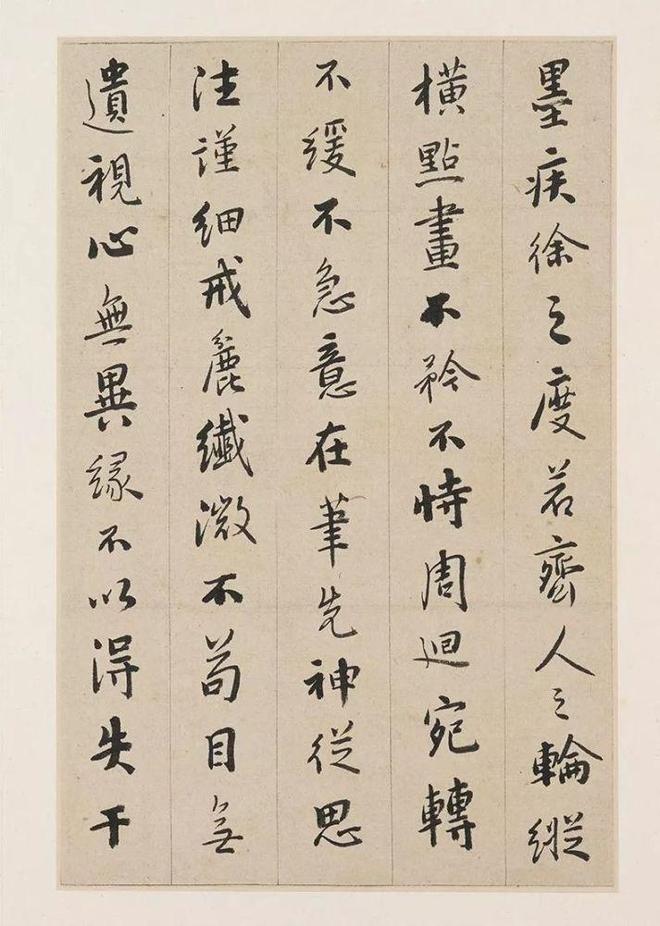 墨疾徐之度若齊人之輪縱
橫點畫不矜不恃周迴宛轉
不緩不急意在筆先神從思
注謹細戒麁纖微不苟目無
遺視心無異緣不以得失干